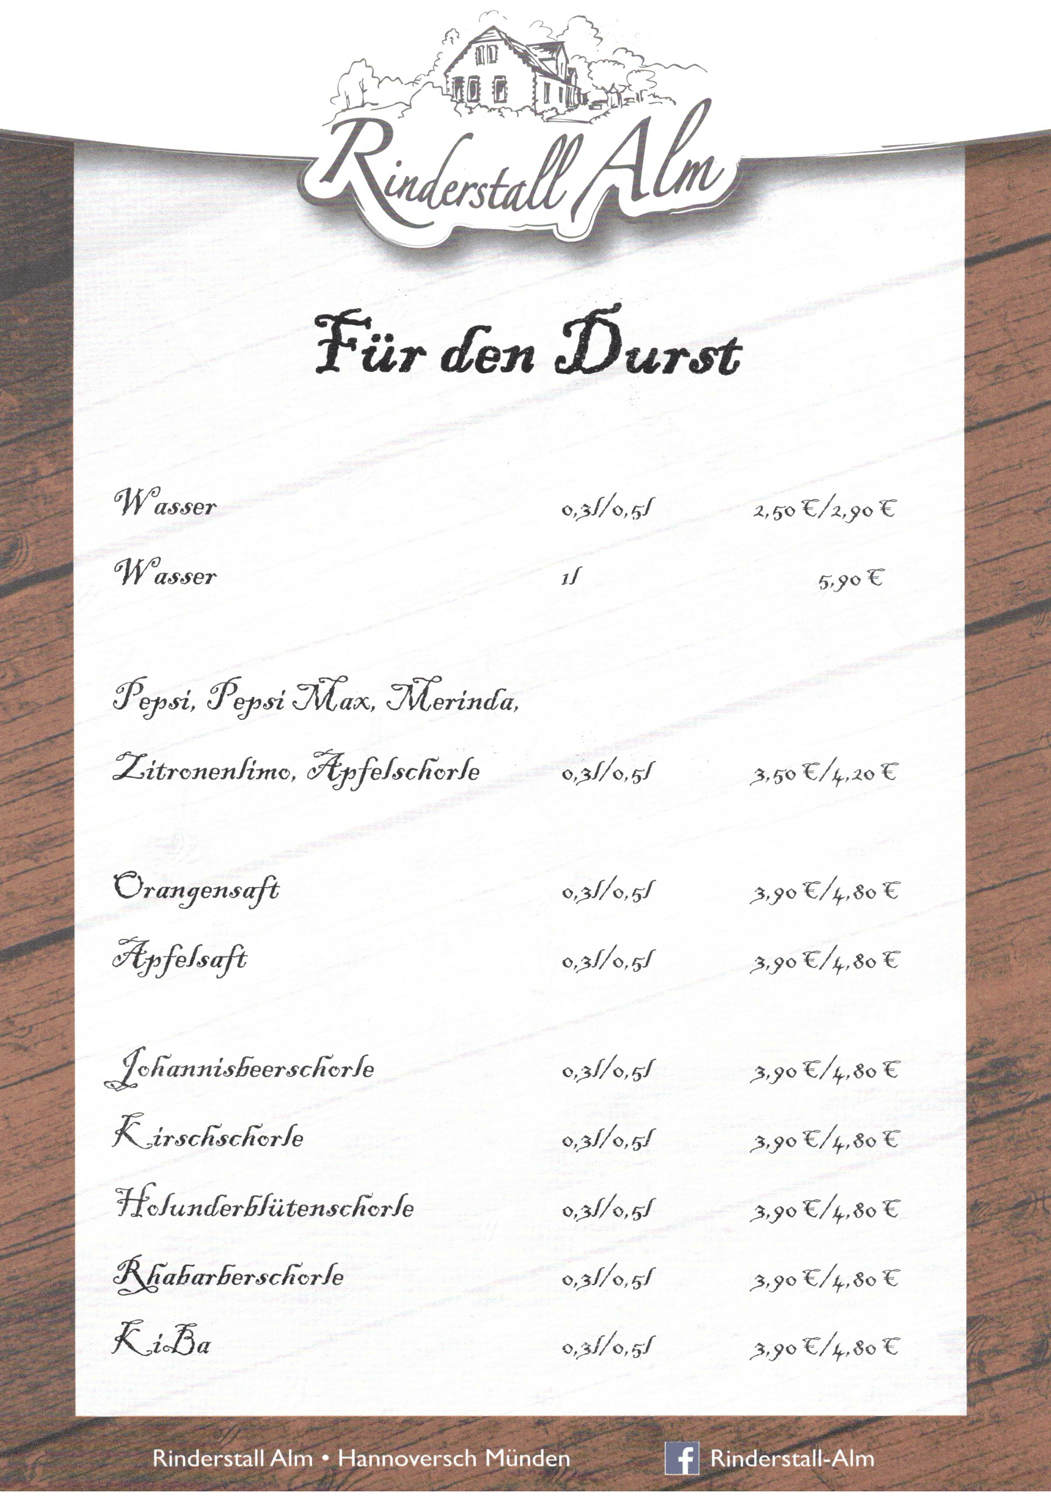 Rinderstall Alm
Für den Durst
Wasser 0,3l/0,5l 2,50 €/2,90 €
Wasser 1l 5,90 €
Pepsi, Pepsi Max, Merinda,
Zitronenlimo, Apfelschorle 0,3l/0,5l 3,50 €/4,20 €
Orangensaft 0,3l/0,5l 3,90 €/4,80 €
Apfelsaft 0,3l/0,5l 3,90 €/4,80 €
Johannisbeerschorle 0,3l/0,5l 3,90 €/4,80 €
Kirschschorle 0,3l/0,5l 3,90 €/4,80 €
Holunderblütenschorle 0,3l/0,5l 3,90 €/4,80 €
Rhabarberschorle 0,3l/0,5l 3,90 €/4,80 €
KiBa 0,3l/0,5l 3,90 €/4,80 €
Rinderstall Alm • Hannoversch Münden f Rinderstall-Alm